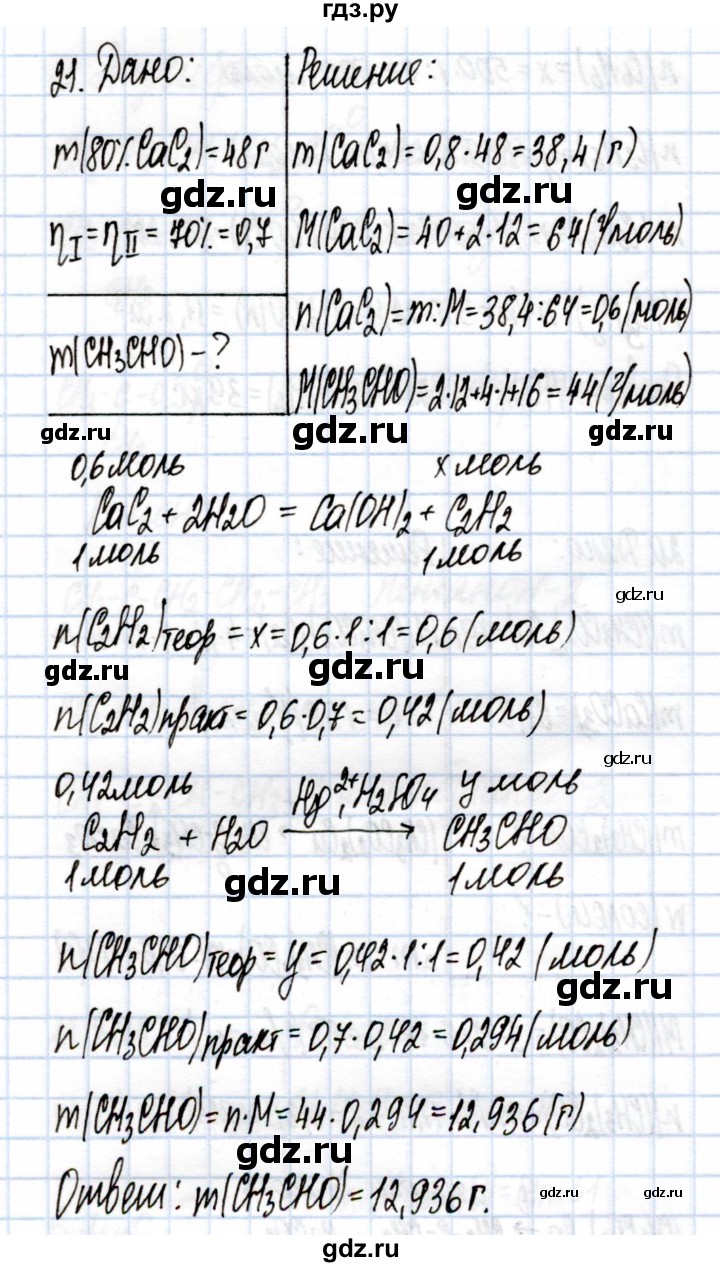 гдз.ру
21. Дано:
m(80% CaC₂) = 48 г
gdz.ru
η_I = η_II = 70% = 0,7
m(CH₃CHO) - ?
gdz.ru
Решение:
m(CaC₂) = 0,8 · 48 = 38,4 (г)
gdz.ru
M(CaC₂) = 40 + 2 · 12 = 64 (г/моль)
n(CaC₂) = m : M = 38,4 : 64 = 0,6 (моль)
M(CH₃CHO) = 2·12+4·1+16 = 44 (г/моль)
gdz.ru gdz.ru
0,6 моль x моль
CaC₂ + 2H₂O = Ca(OH)₂ + C₂H₂
1 моль 1 моль
gdz.ru
n(C₂H₂)теор = x = 0,6 · 1 : 1 = 0,6 (моль)
gdz.ru gdz.ru
n(C₂H₂)практ = 0,6 · 0,7 = 0,42 (моль)
gdz.ru
0,42 моль Hg²⁺, H₂SO₄ y моль
C₂H₂ + H₂O → CH₃CHO
1 моль 1 моль
gdz.ru
n(CH₃CHO)теор = y = 0,42 · 1 : 1 = 0,42 (моль)
gdz.ru
n(CH₃CHO)практ = 0,7 · 0,42 = 0,294 (моль)
m(CH₃CHO) = n · M = 44 · 0,294 = 12,936 (г)
gdz.ru
Ответ: m(CH₃CHO) = 12,936 г.
gdz.ru gdz.ru
gdz.ru